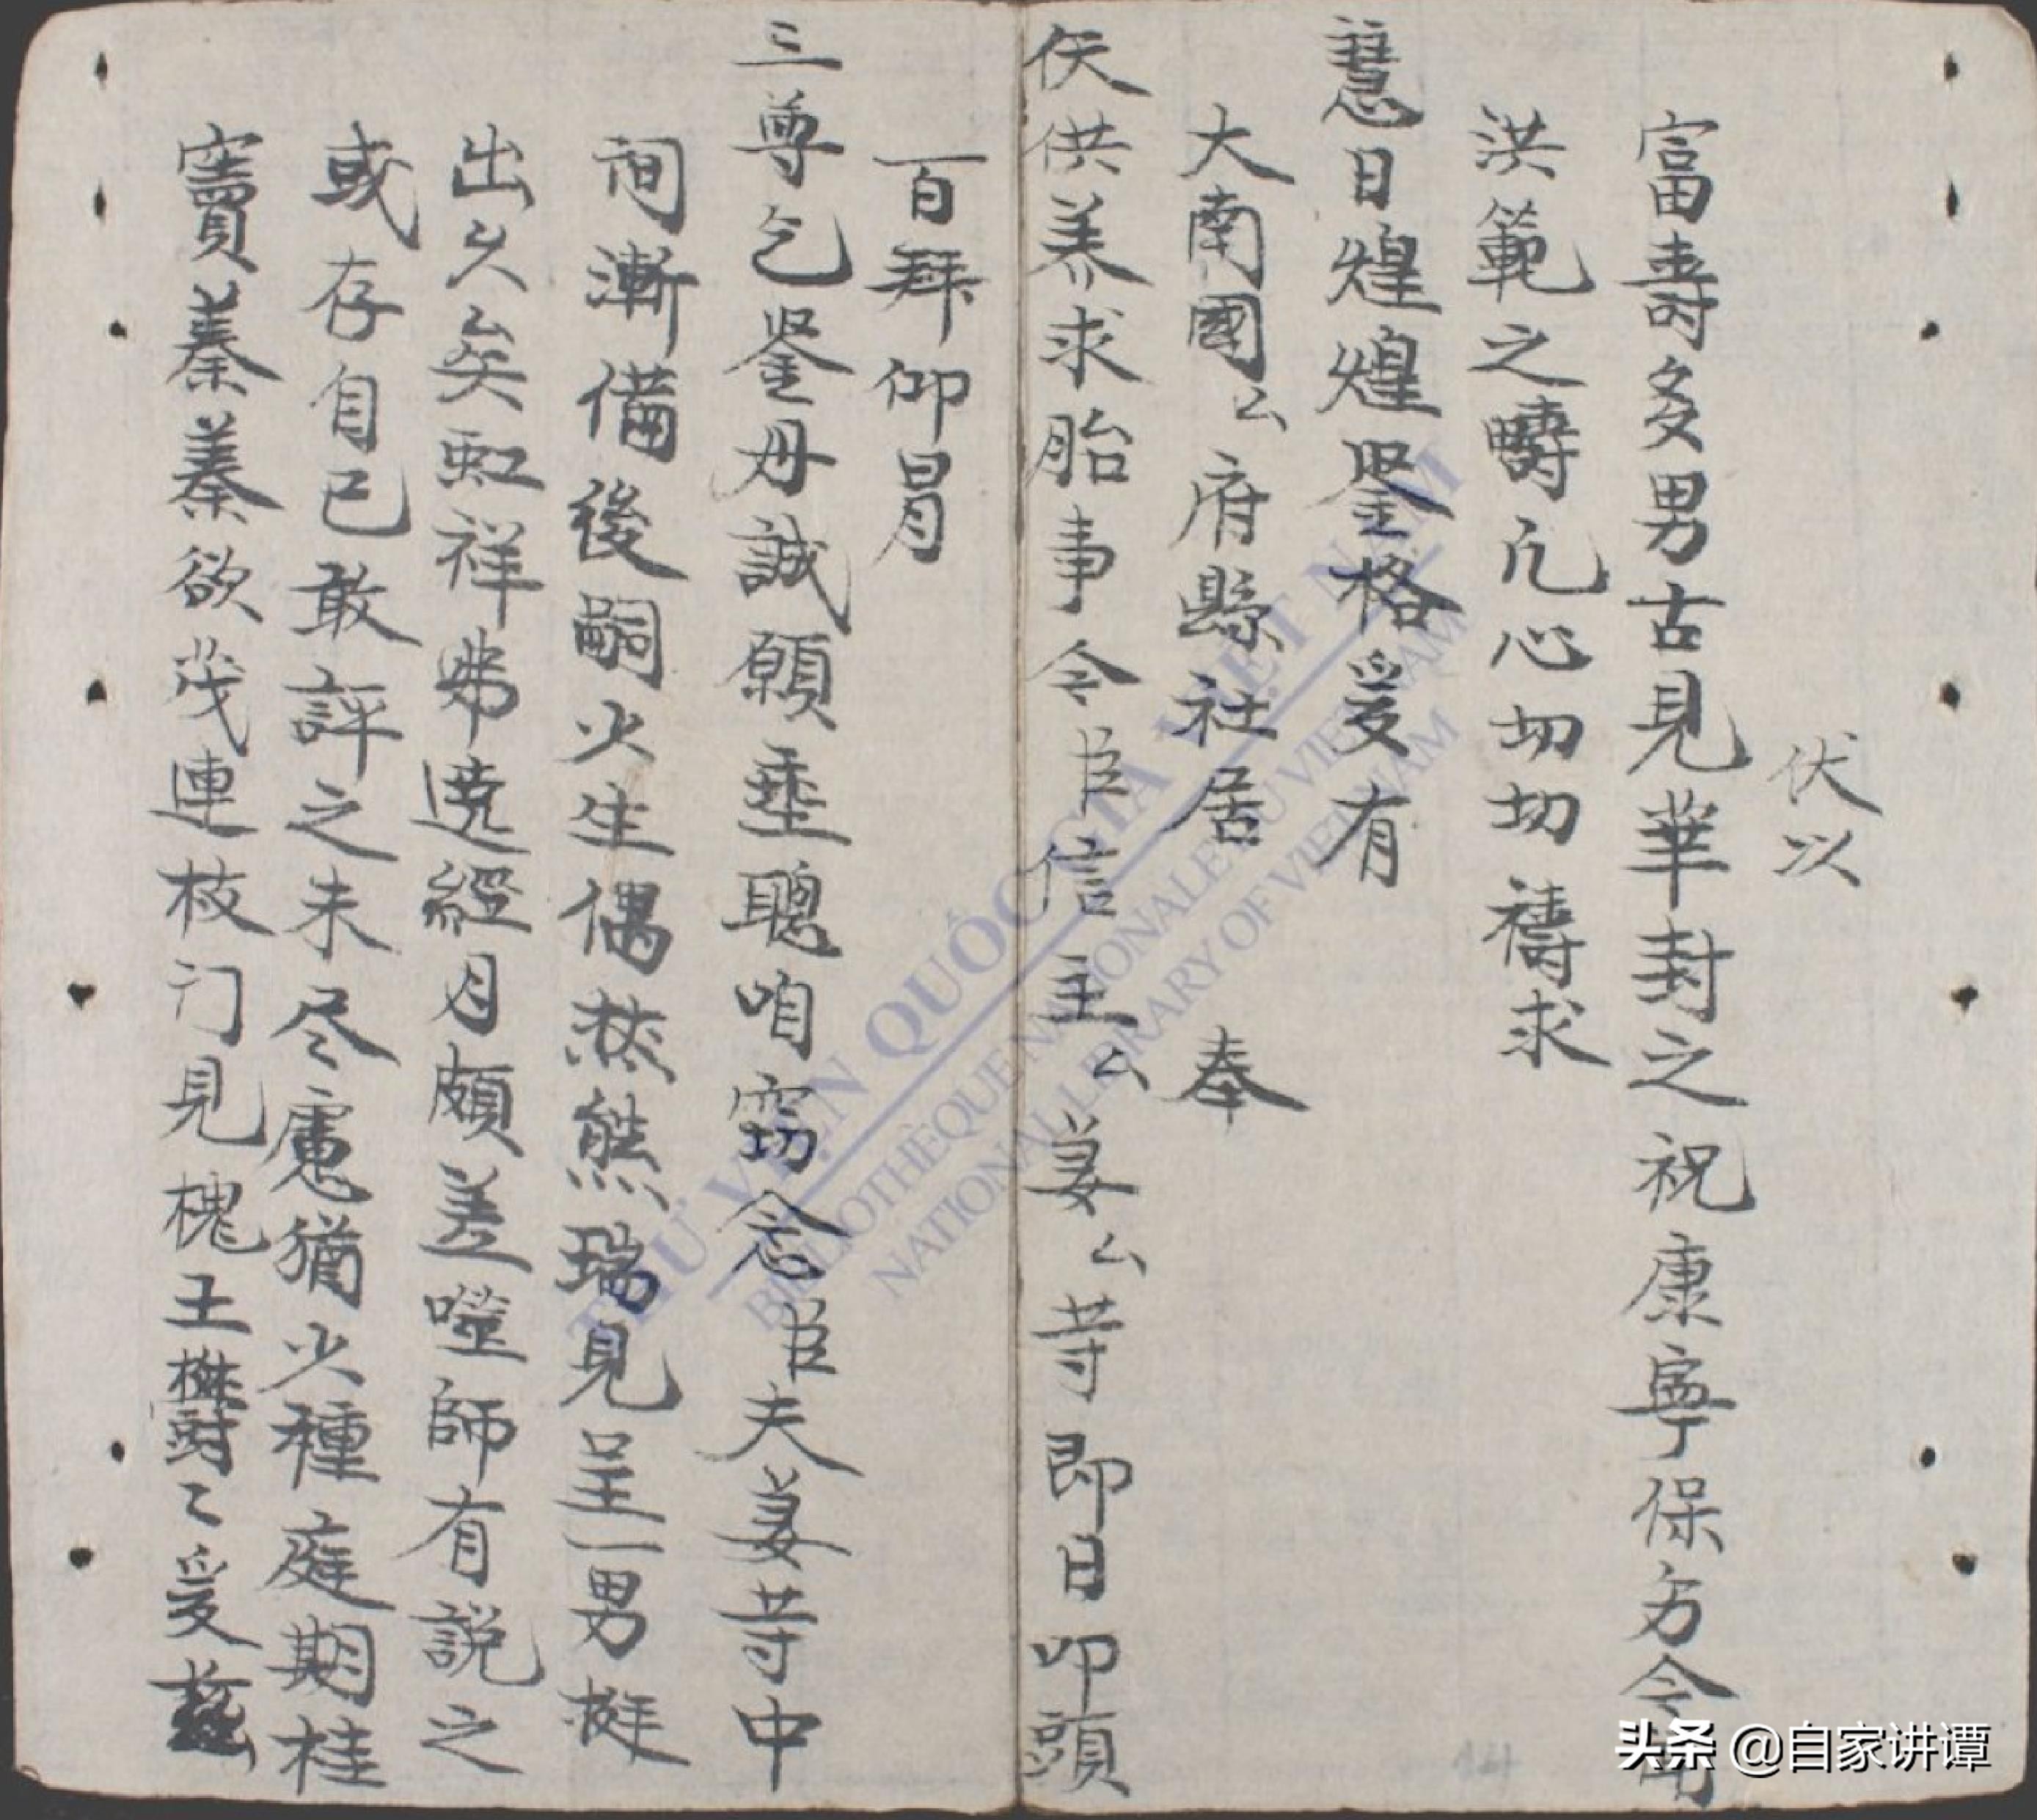 伏以
富壽多男古見華封之祝康寧保方今
洪範之疇凢心切切禱求
慧日煌煌鉴格爰有
大南國厶府縣社居 奉
伕供养求胎事令臣信主厶妾厶䓁即日叩頭
百拜仰冒
三尊乞鉴毋誠願垂聰咱窃念臣夫妾䓁中
间漸備後嗣火生偶然熊瑞見呈一男挺
出久矣虹祥弗遶經月頗差噬師有説之
或存自已敢評之未尽慮猶少種庭期桂
竇蓁蓁欲茂連枝门見槐王欝〻爰茲
THƯ VIỆN QUỐC GIA VIỆT NAM
BIBLIOTHÈQUE NATIONALE DU VIETNAM
NATIONAL LIBRARY OF VIETNAM
14
头条 @自家讲谭